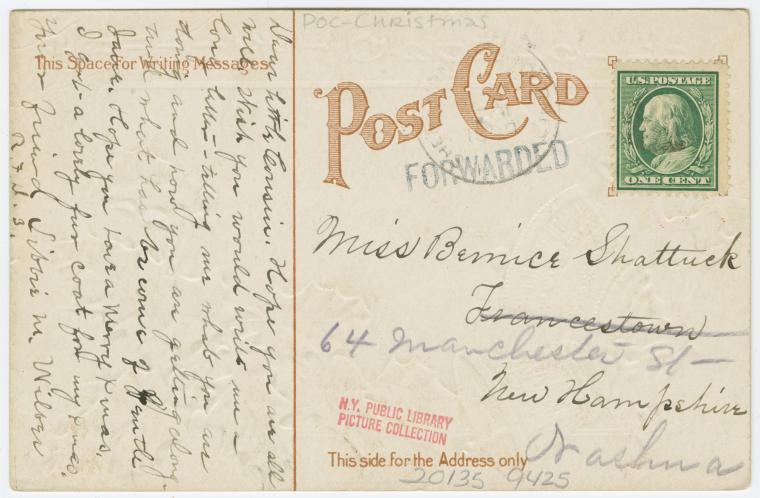 Doc-Christmas
This Space for Writing Messages
Dear little Cousin. Hope you are all
well. Wish you would write me a
long letter - telling me what you are
doing and how you are getting along -
and what has become of
Jane. Hope you have a Merry Xmas.
I got a lovely fur coat for my Xmas.
Your friend Libbie M. Wilber
R.F.D. 3.
POST CARD
FORWARDED
U.S. POSTAGE
ONE CENT
Miss Bernice Shattuck
Francestown
64 Manchester St -
New Hampshire
Nashua
N.Y. PUBLIC LIBRARY
PICTURE COLLECTION
This side for the Address only
20135 9425